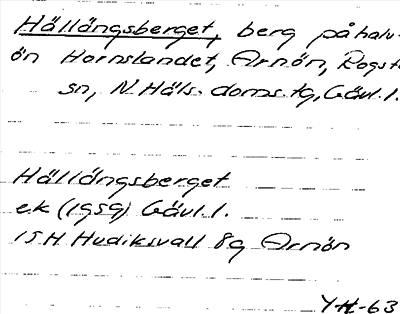 Hällångsberget, berg på halv-
ön Hornslandet, Arnön, Rogst
sn, N. Häls. doms. tg, Gävl. l.
Hällångsberget
ek (1959) Gävl. l.
15H Hudiksvall 8g Arnön
YH-63